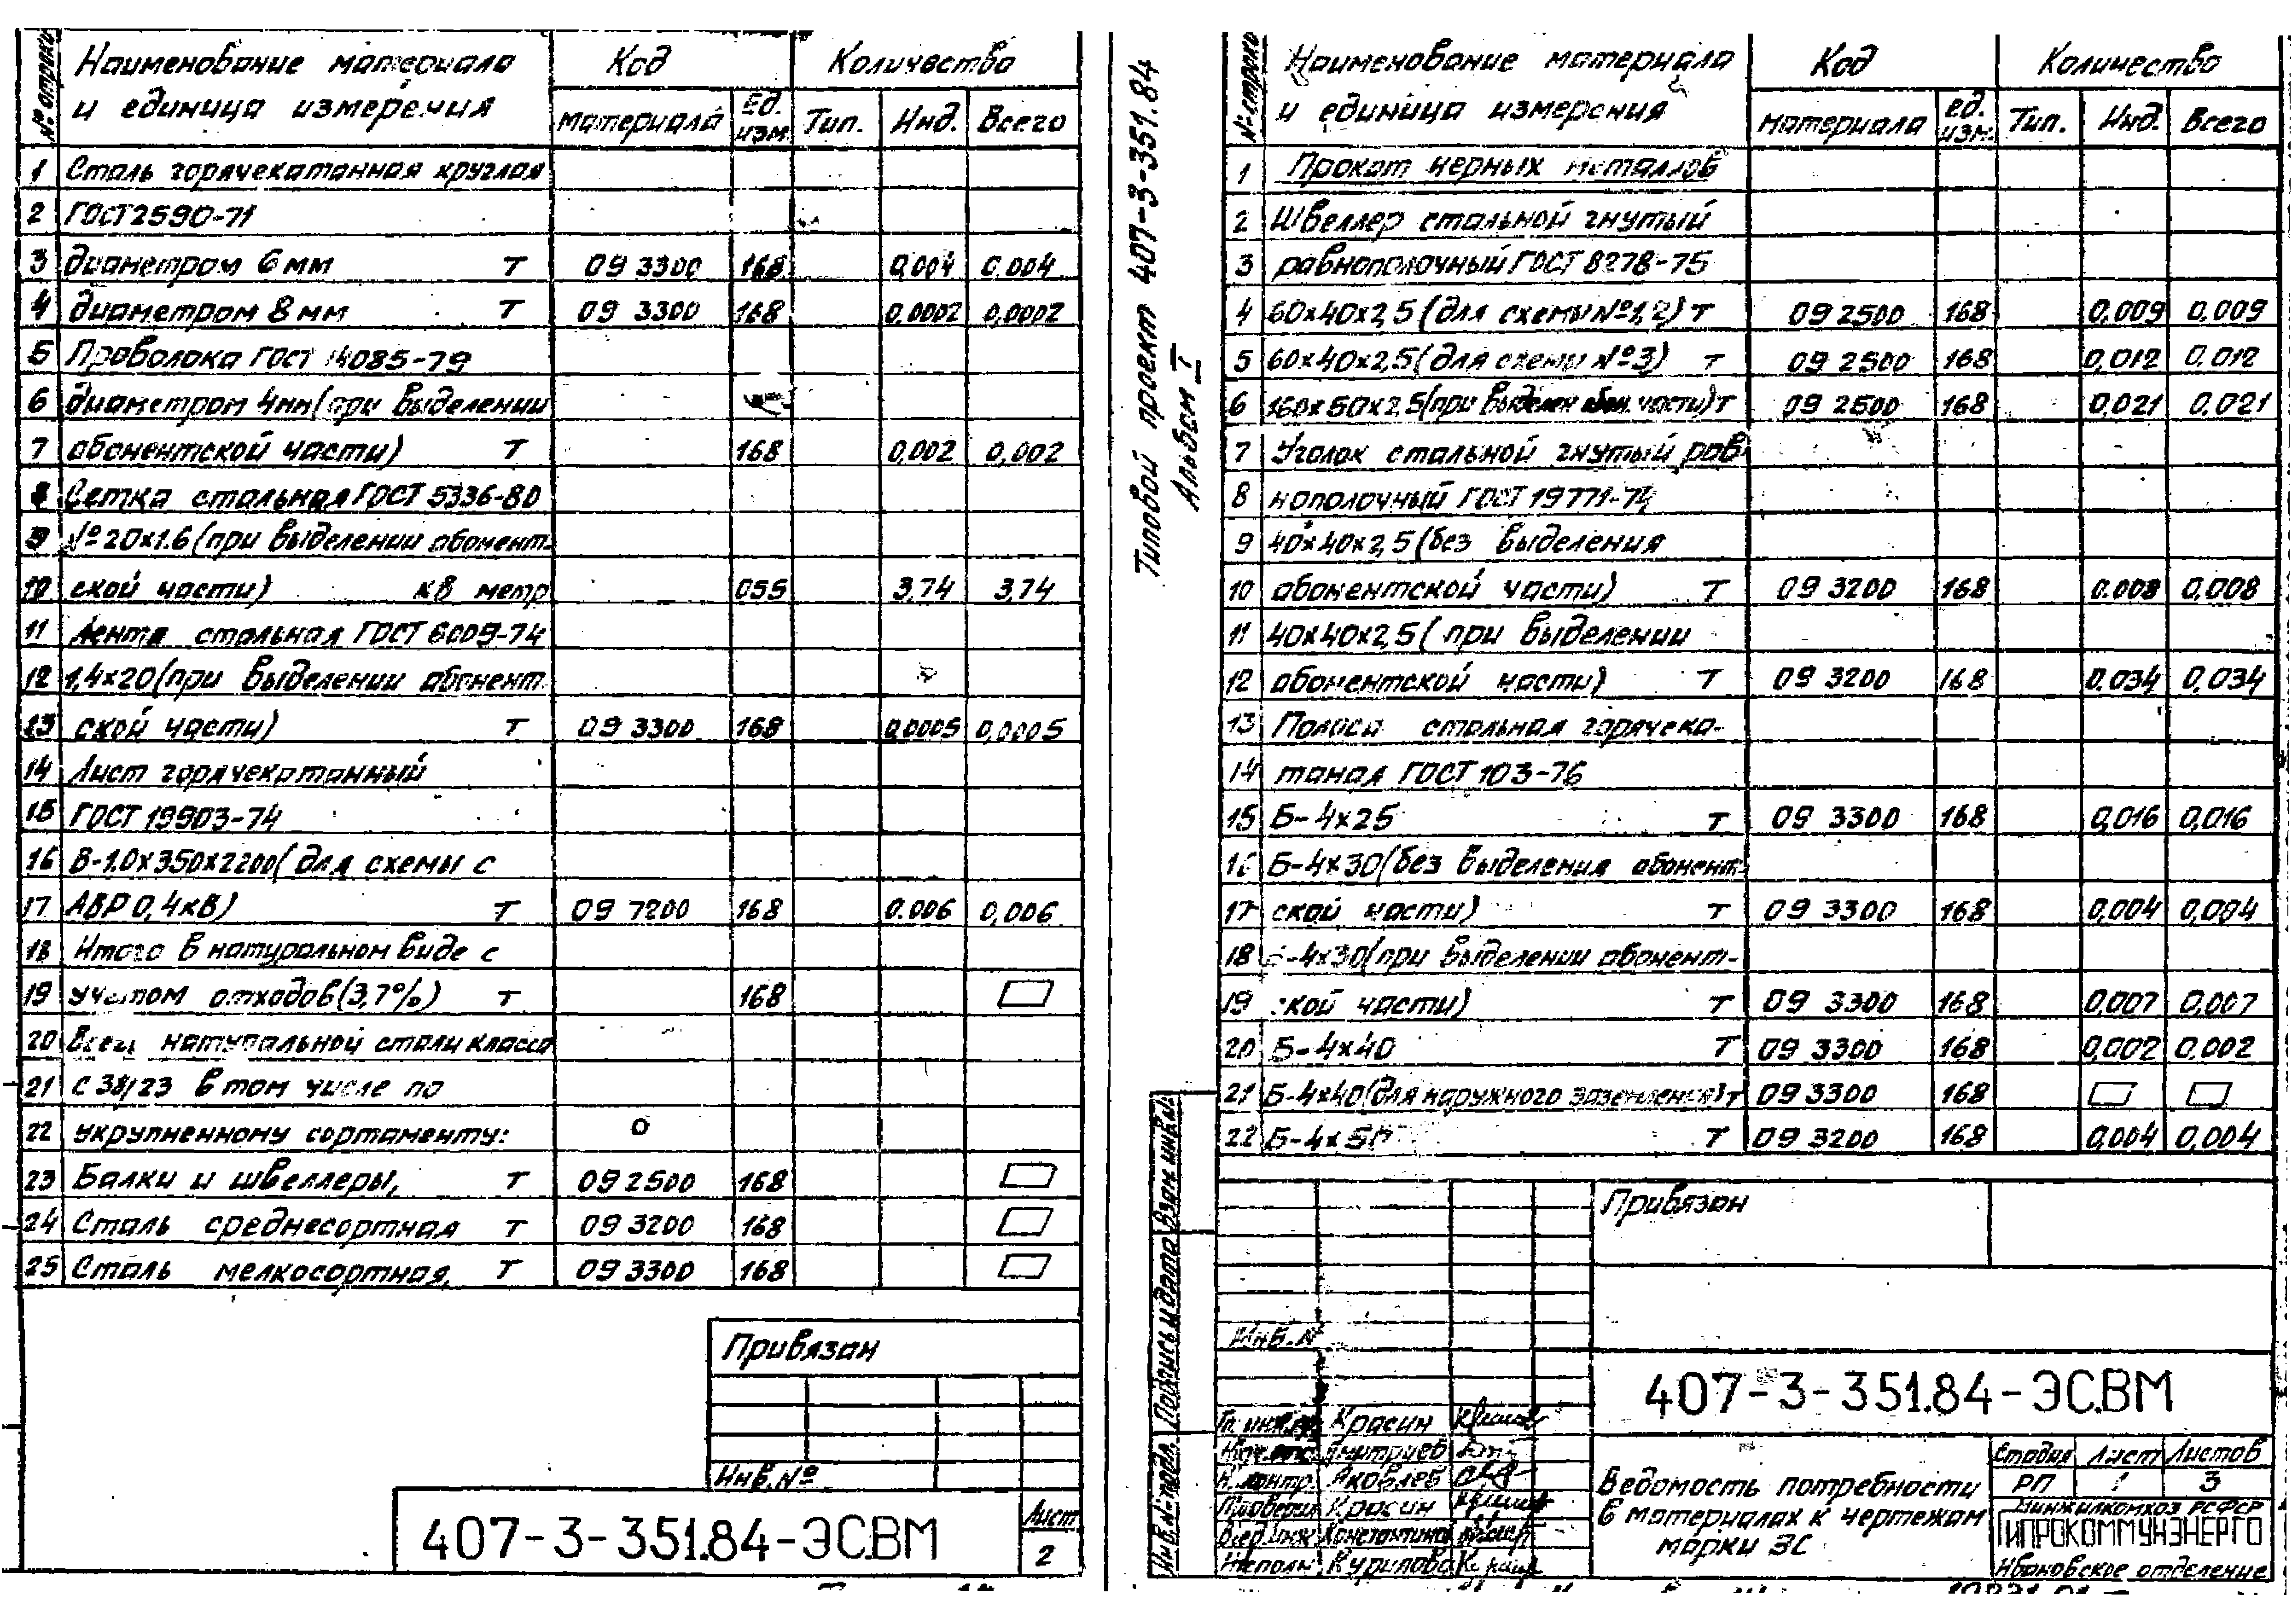 № строки Наименование материала и единица измерения Код Количество
материала Ед. изм. Тип. Инд. Всего
1 Сталь горячекатанная круглая
2 ГОСТ 2590-71
3 диаметром 6 мм Т 09 3300 168 0,004 0,004
4 диаметром 8 мм Т 09 3300 168 0,0002 0,0002
5 Проволока ГОСТ 14085-79
6 диаметром 4мм (при выделении
7 абонентской части) Т 168 0,002 0,002
8 Сетка стальная ГОСТ 5336-80
9 №20х1.6 (при выделении абонент-
10 ской части) кв метр 055 3,74 3,74
11 Лента стальная ГОСТ 6009-74
12 1,4х20 (при выделении абонент-
13 ской части) Т 09 3300 168 0,0005 0,0005
14 Лист горячекатанный
15 ГОСТ 19903-74
16 В-1.0х350х2200 (для схемы с
17 АВР 0,4кВ) Т 09 7200 168 0.006 0,006
18 Итого в натуральном виде с
19 учетом отходов (3,7%) т 168
20 Всего натуральной стали класса
21 С 38/23 в том числе по
22 укрупненному сортаменту:
23 Балки и швеллеры, Т 09 2500 168
24 Сталь среднесортная Т 09 3200 168
25 Сталь мелкосортная, Т 09 3300 168
Привязан
Инв.№
407-3-351.84-ЭС.ВМ
Лист
2
Типовой проект 407-3-351.84
Альбом I
№ строки Наименование материала и единица измерения Код Количество
материала ед. изм. Тип. Инд. Всего
1 Прокат черных металлов
2 Швеллер стальной гнутый
3 равнополочный ГОСТ 8278-75
4 60х40х2,5 (для схемы №1,2) т 09 2500 168 0,009 0,009
5 60х40х2,5 (для схемы №3) т 09 2500 168 0,012 0,012
6 160х50х2,5 (при выделен абон. части) т 09 2500 168 0,021 0,021
7 Уголок стальной гнутый рав-
8 нополочный ГОСТ 19771-74
9 40х40х2,5 (без выделения
10 абонентской части) Т 09 3200 168 0.008 0,008
11 40х40х2,5 ( при выделении
12 абонентской части) Т 09 3200 168 0.034 0,034
13 Полоса стальная горячека-
14 таная ГОСТ 103-76
15 Б-4х25 Т 09 3300 168 0,016 0,016
16 Б-4х30 (без выделения абонент-
17 ской части) Т 09 3300 168 0,004 0,004
18 Б-4х30 (при выделении абонент-
19 ской части) Т 09 3300 168 0,007 0,007
20 Б-4х40 Т 09 3300 168 0,002 0,002
21 Б-4х40 (для наружного заземления) т 09 3300 168
22 Б-4х50 Т 09 3200 168 0,004 0,004
Привязан
Инв.№
Инв.№ подл. Подпись и дата Взам инв.№
407-3-351.84-ЭС.ВМ
Гл. инж.пр. Красин
Дмитриев
Н.контр. Яковлев
Проверил Красин
Вед.инж Константинова
Исполн Курилова
Ведомость потребности
в материалах к чертежам
марки ЭС
Стадия Лист Листов
РП 1 3
Минжилкомхоз РСФСР
ГИПРОКОММУНЭНЕРГО
Ивановское отделение